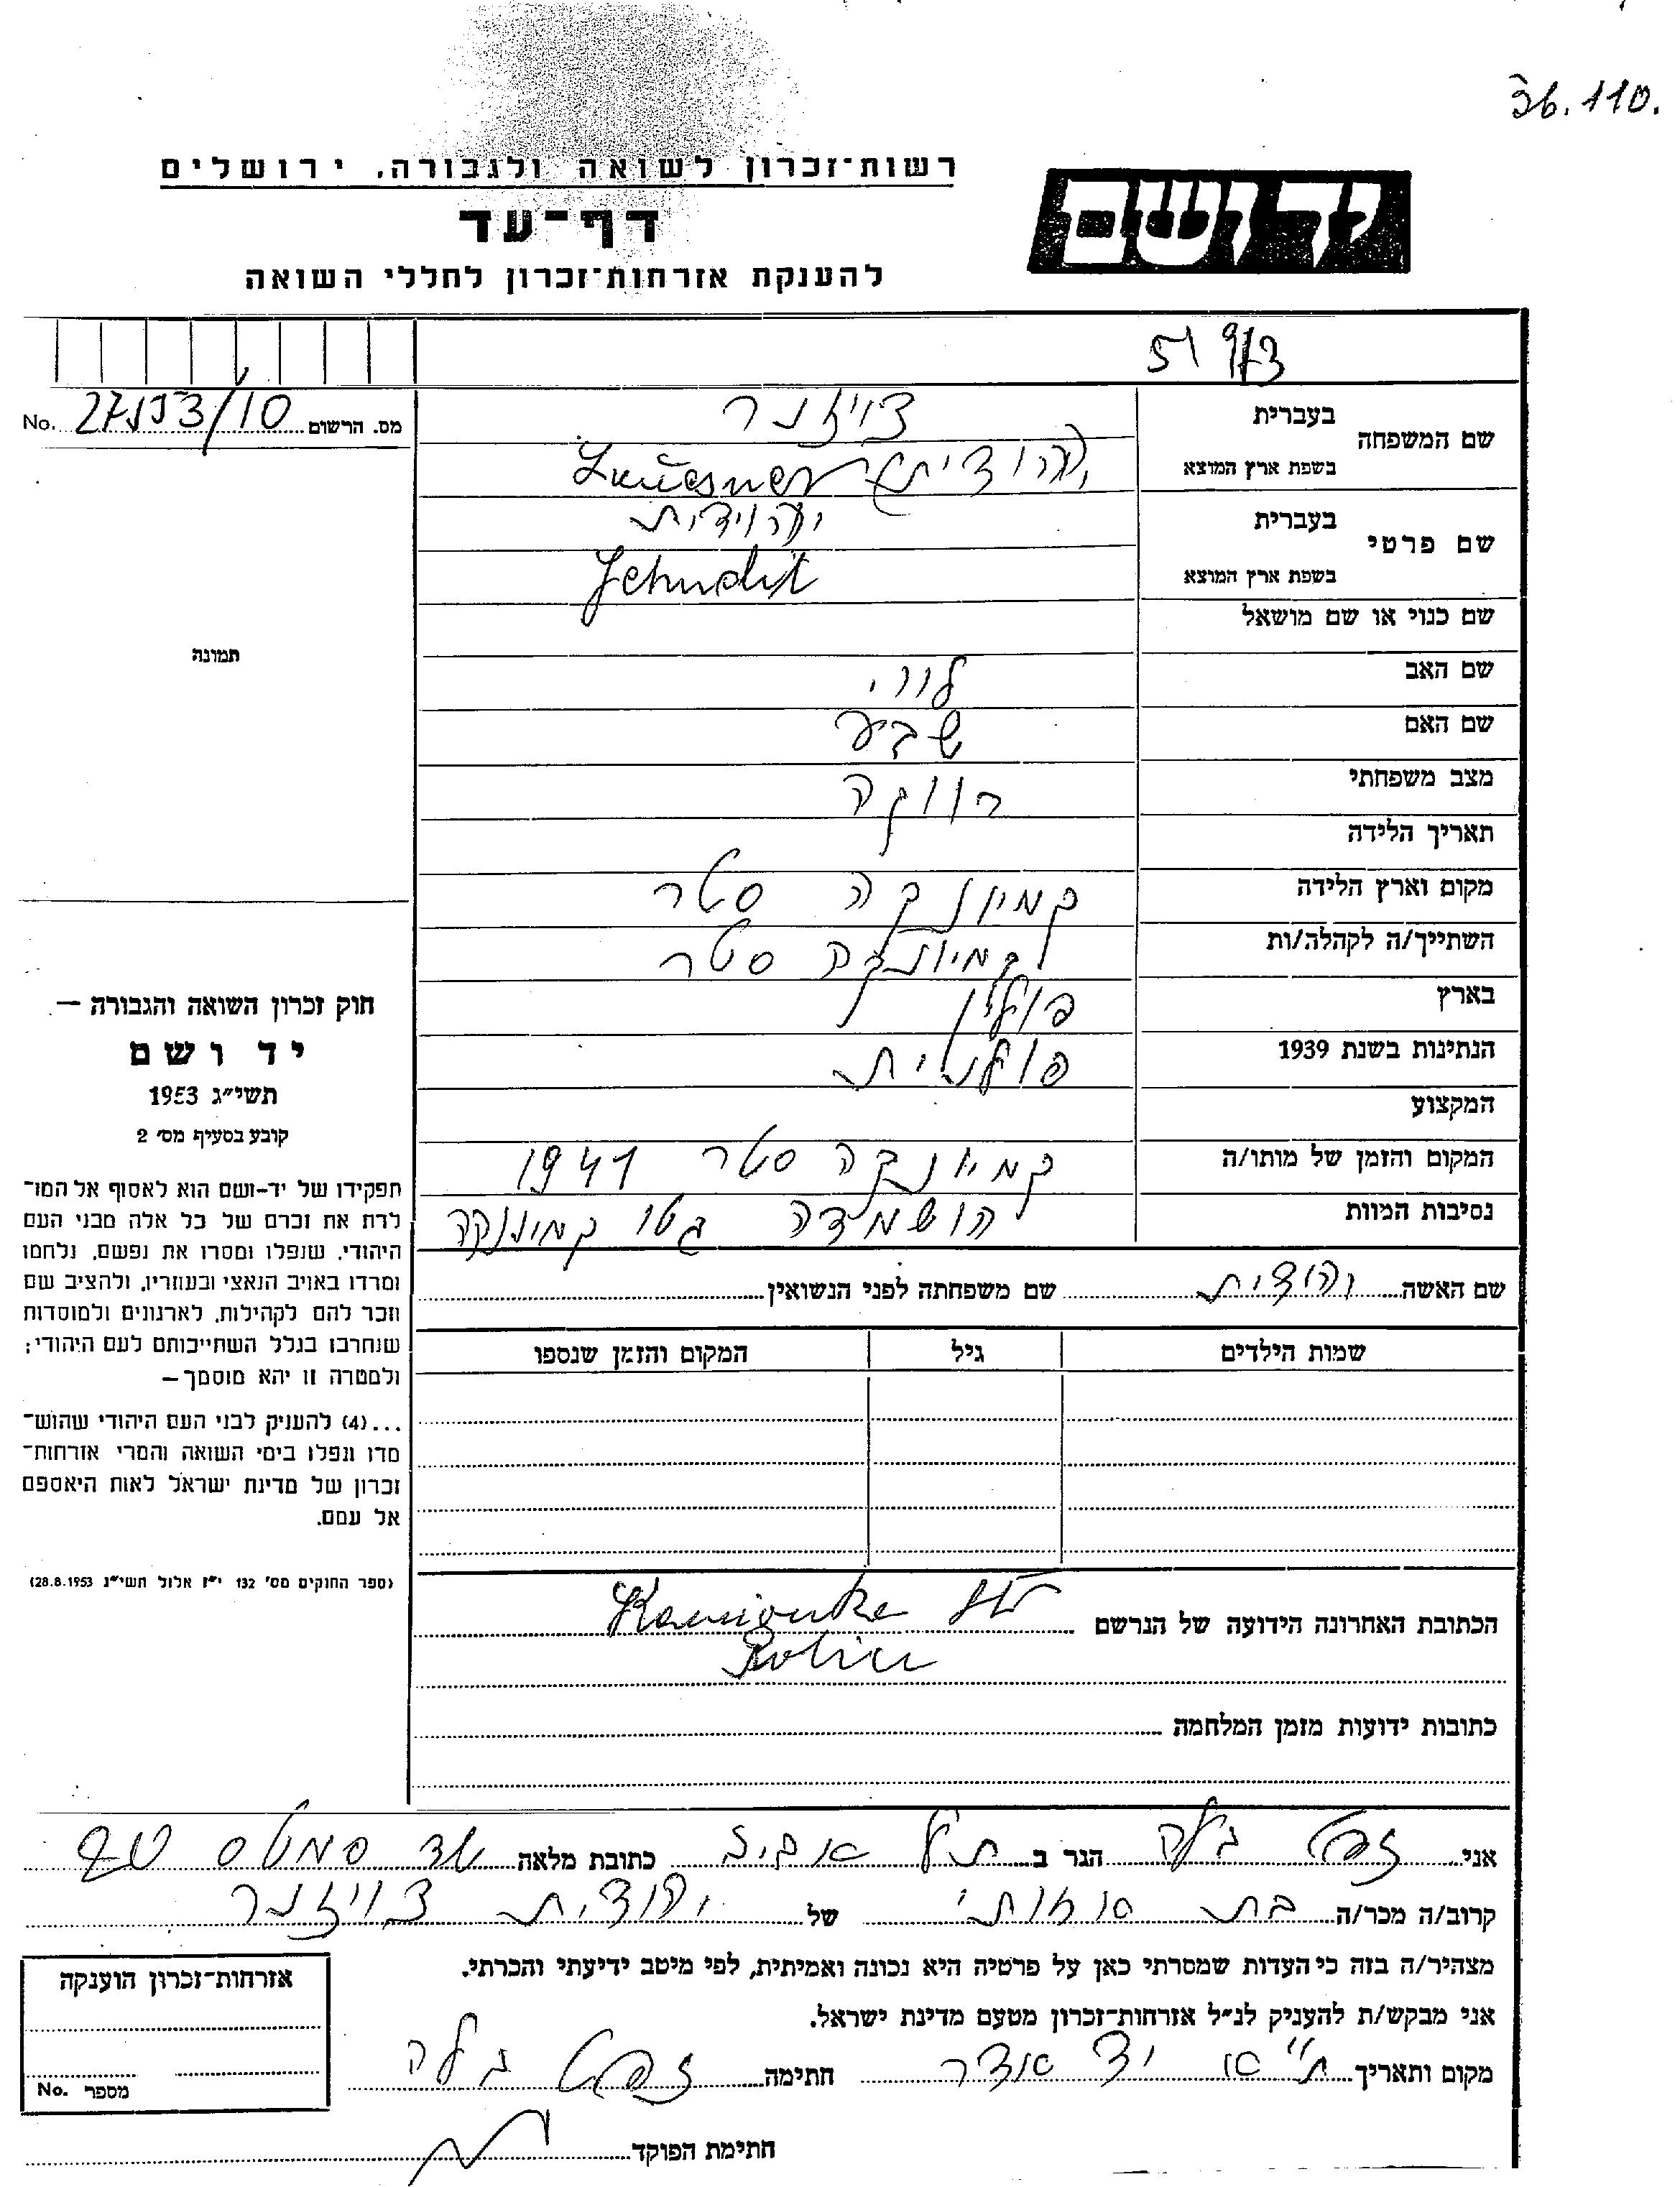 36.110.
רשות־זכרון לשואה ולגבורה, ירושלים
יד ושם
דף־עד
להענקת אזרחות־זכרון לחללי השואה
51 9/73
שם המשפחה בעברית צויזנר
בשפת ארץ המוצא (יהודית)
שם פרטי בעברית יהודית
בשפת ארץ המוצא Jehudit
שם כנוי או שם מושאל
שם האב לוי
שם האם שבע
מצב משפחתי רווקה
תאריך הלידה
מקום וארץ הלידה קמיונקה סטר
השתייך/ה לקהלה/ות קמיונקה סטר
בארץ פולין
הנתינות בשנת 1939 פולנית
המקצוע
המקום והזמן של מותו/ה קמיונקה סטר 1941
נסיבות המוות הושמדה גטו קמיונקה
מס. הרשום No.
תמונה
חוק זכרון השואה והגבורה —
יד ושם
תשי״ג 1953
קובע בסעיף מס׳ 2
תפקידו של יד-ושם הוא לאסוף אל המו־
לדת את זכרם של כל אלה מבני העם
היהודי, שנפלו ומסרו את נפשם, נלחמו
ומרדו באויב הנאצי ובעוזריו, ולהציב שם
וזכר להם לקהילות, לארגונים ולמוסדות
שנחרבו בגלל השתייכותם לעם היהודי;
ולמטרה זו יהא מוסמך —
...(4) להעניק לבני העם היהודי שהוש־
מדו ונפלו בימי השואה והמרי אזרחות־
זכרון של מדינת ישראל לאות היאספם
אל עמם.
(ספר החוקים מס׳ 132 י״ז אלול תשי״ג 28.8.1953)
שם האשה יהודית שם משפחתה לפני הנשואין
שמות הילדים גיל המקום והזמן שנספו
הכתובת האחרונה הידועה של הנרשם Kamionka
כתובות ידועות מזמן המלחמה
אני גולה הגר ב תל אביב כתובת מלאה
קרוב/ה מכר/ה בת של יהודית צויזנר
מצהיר/ה בזה כי העדות שמסרתי כאן על פרטיה היא נכונה ואמיתית, לפי מיטב ידיעתי והכרתי.
אני מבקש/ת להעניק לנ״ל אזרחות־זכרון מטעם מדינת ישראל.
מקום ותאריך ת״א יד אדר חתימה גולה
חתימת הפוקד
אזרחות־זכרון הוענקה
מספר No.